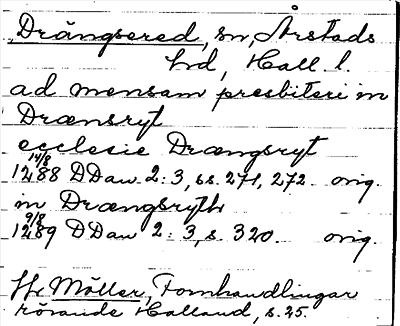 Drängsered, sn, Årstads
hd, Hall. l.
ad mensam presbiteri in
Drænsryt
ecclesie Drængsryt
14/8
1288 DDan 2:3, ss. 271, 272. orig.
in Drængsryth
9/8
1289 DDan 2:3, s. 320. orig.
Jfr Möller, Fornhandlingar
rörande Halland, s. 25.